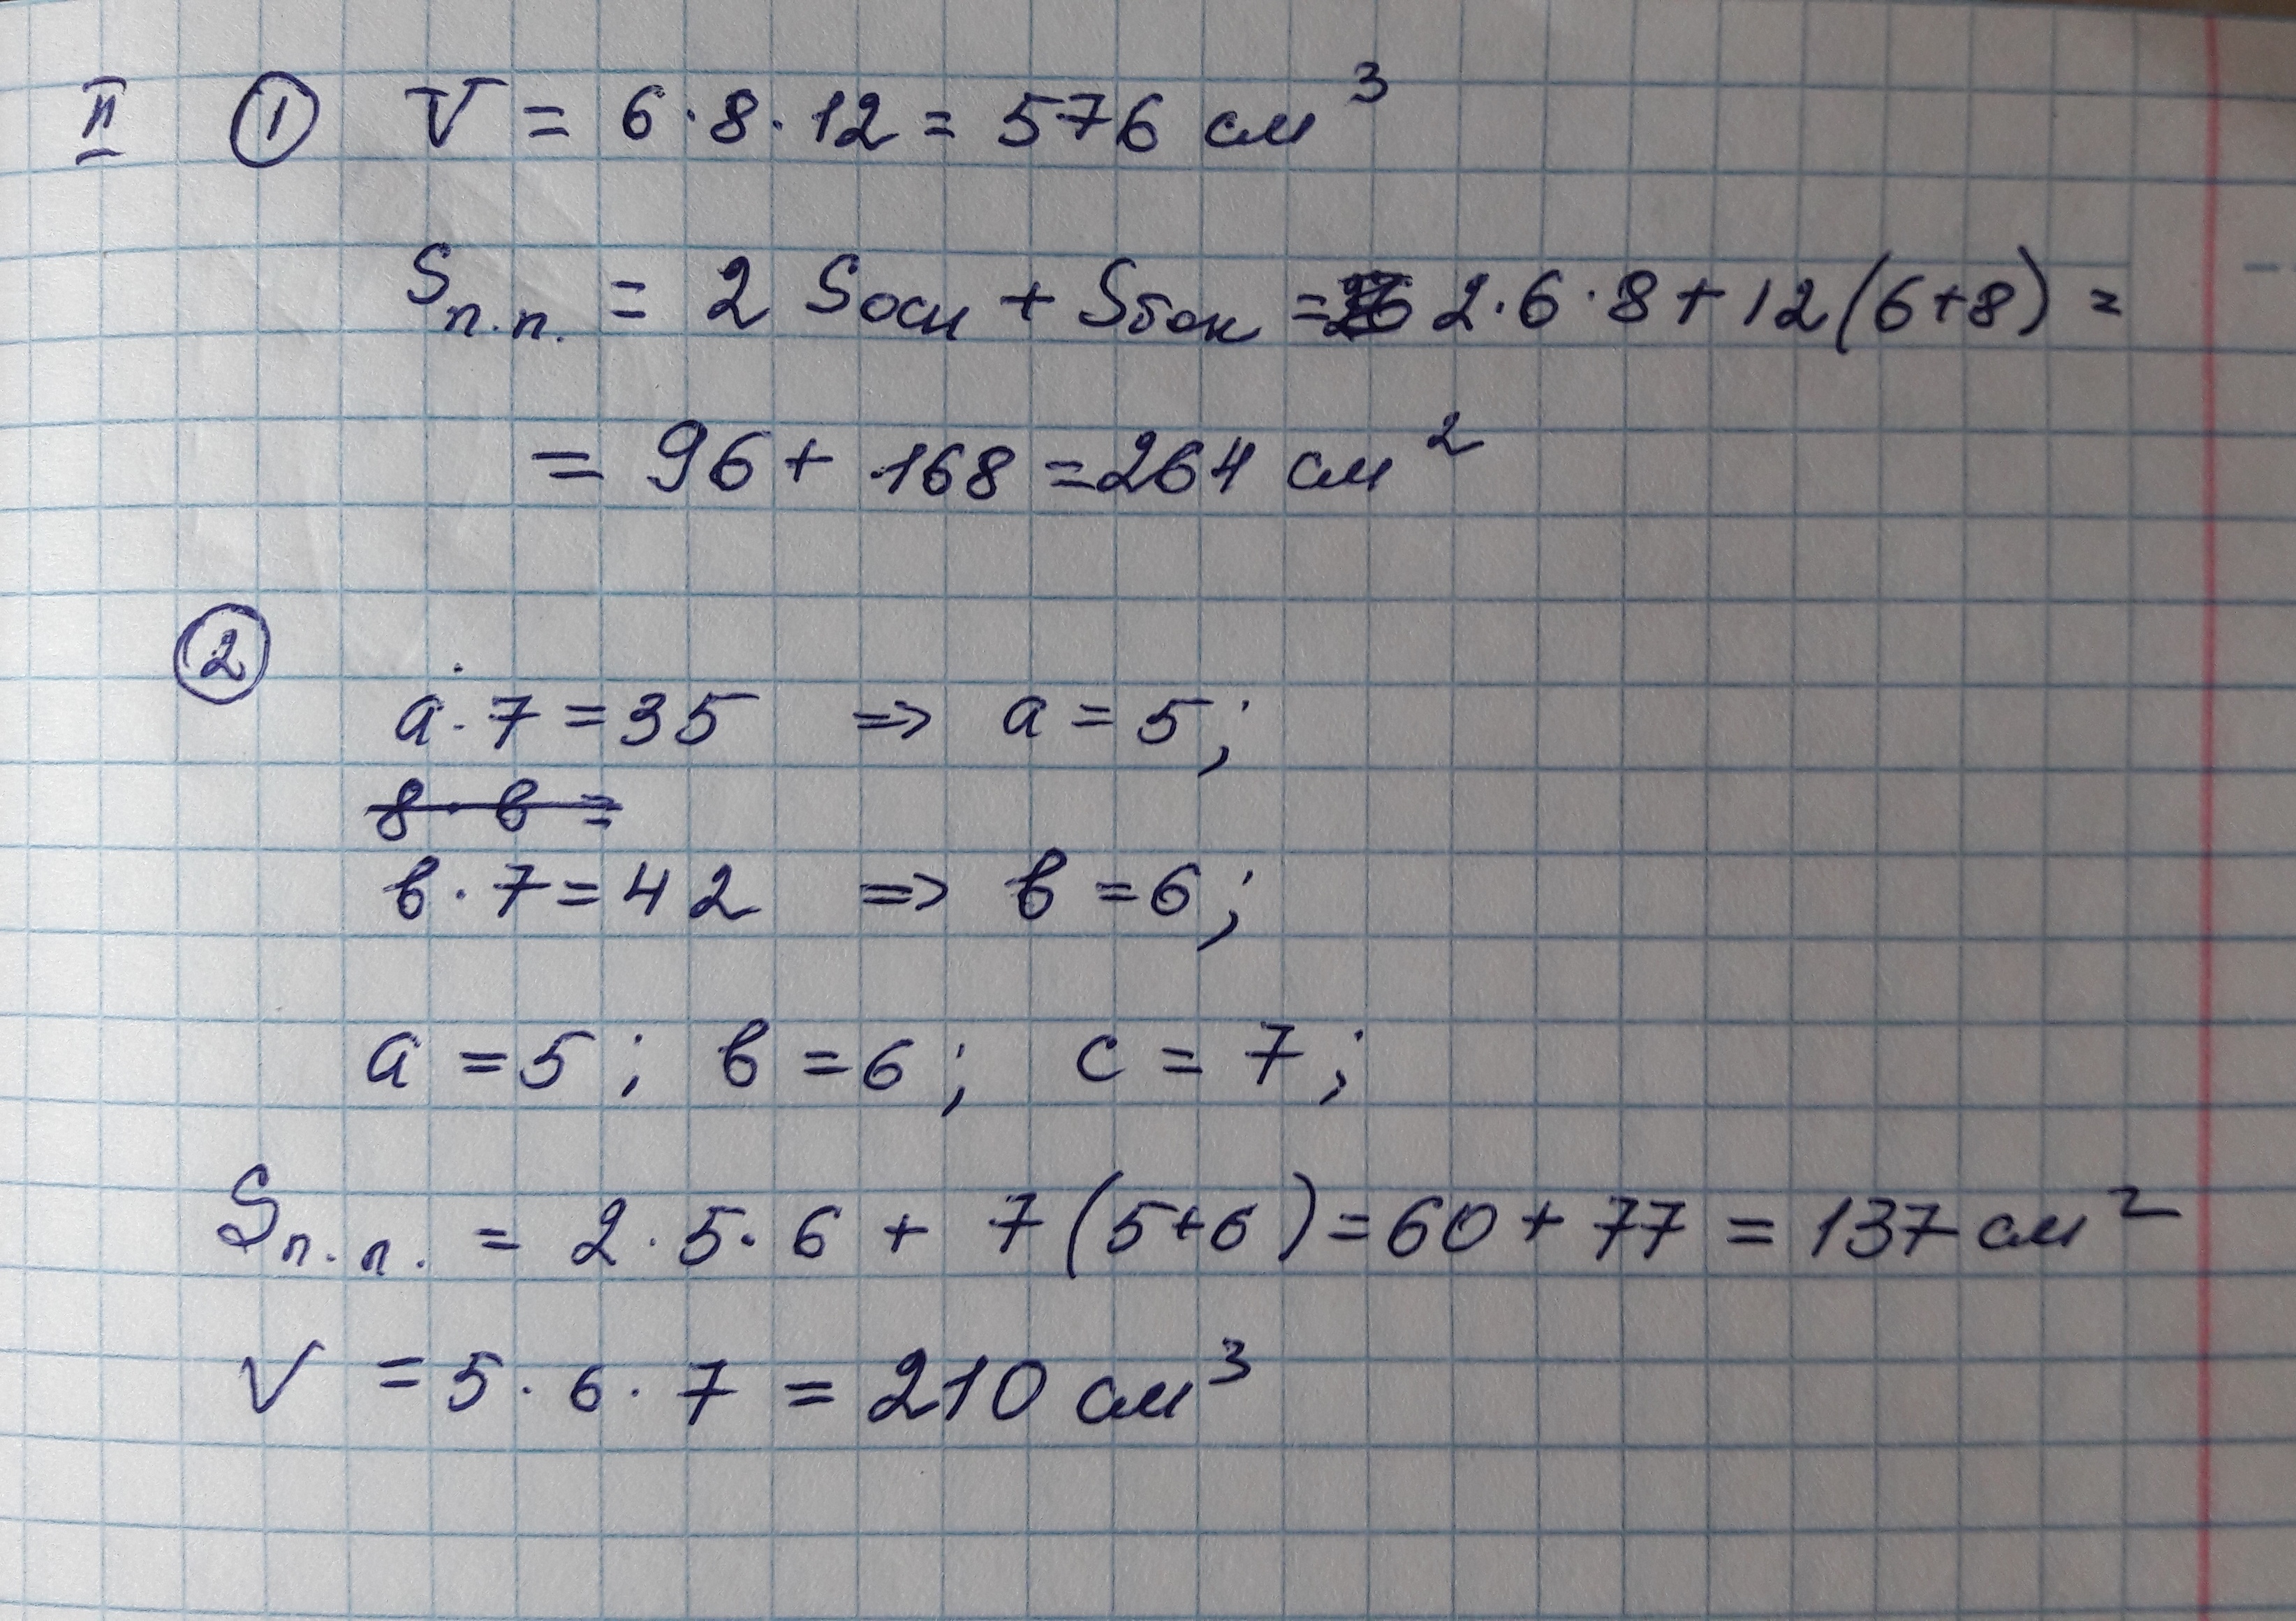 II ① V = 6·8·12 = 576 см³
Sп.п. = 2 Sосн + Sбок = 2·6·8 + 12(6+8) =
= 96 + 168 = 264 см²
②
a·7 = 35 => a = 5;
8·в =
в·7 = 42 => в = 6;
a = 5; в = 6; c = 7;
Sп.п. = 2·5·6 + 7(5+6) = 60 + 77 = 137 см²
V = 5·6·7 = 210 см³